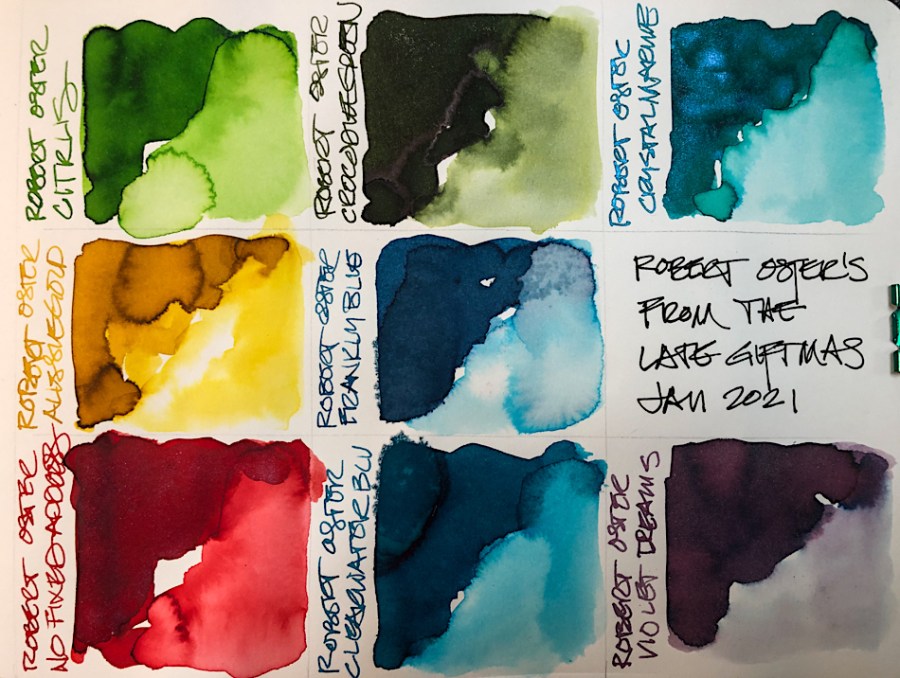 ROBERT OSTER
CITRUS
ROBERT OSTER
CROCODILE GREEN
ROBERT OSTER
CRYSTAL MARINE
ROBERT OSTER
AUSSIE GOLD
ROBERT OSTER
FRANKLY BLUE
ROBERT OSTER'S
FROM THE
LATE GIFTMAS
JAN 2021
ROBERT OSTER
NO FIXED ADDRESS
ROBERT OSTER
CLEARWATER BLU
ROBERT OSTER
VIOLET DREAMS